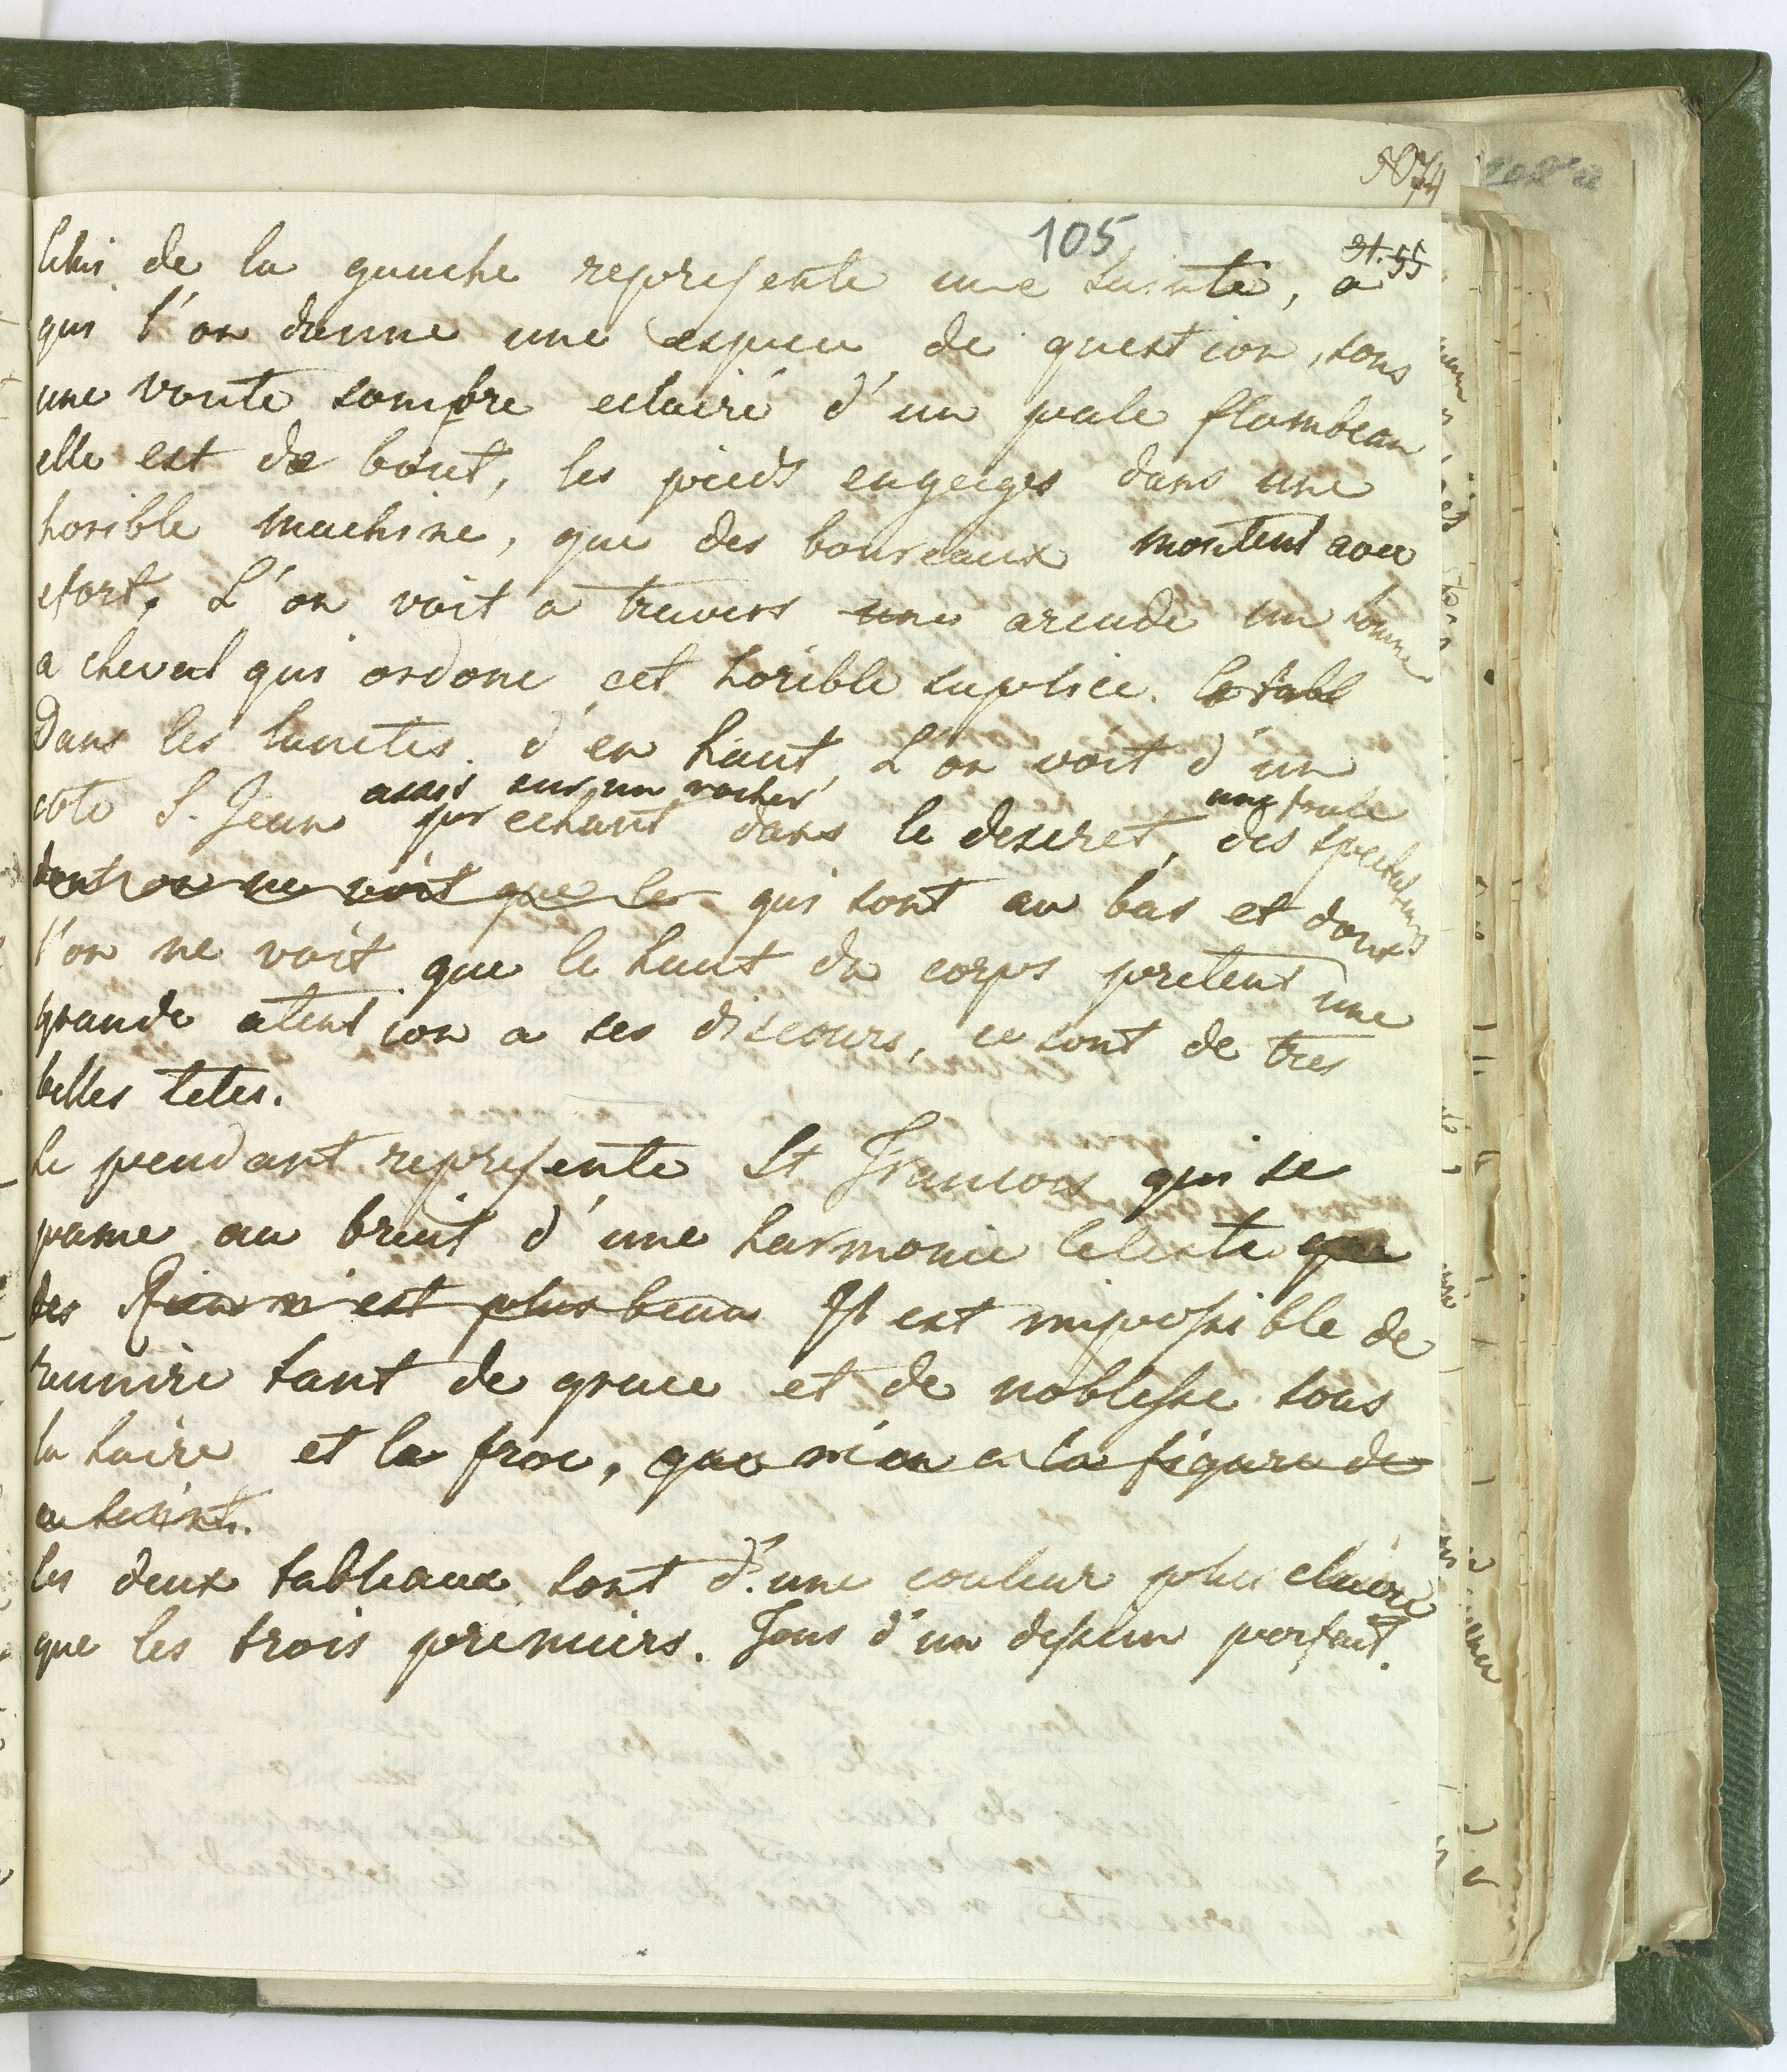 105
Celui de la gauche represente une sainte, a
qui l'on donne une espece de question, sous
une voute sombre eclairé d'un pale flambeau
elle est de bout, les pieds engeges dans une
horible machine, que des boureaux montent avec
efort, L'on voit a travers une arcade un homme
a cheval qui ordone cet horible suplice. le tabl
Dans les lunetes d'en haut, L'on voit d'un
assis sur un rocher une foule
coté S. Jean prechant dans le deseret, des spectateurs
dont on ne voit que le qui sont au bas et dont
l'on ne voit que le haut du corps pretent une
grande atention a ses discours, ce sont de tres
belles tetes.
Le pendant represente St Francois qui se
pame au bruit d'une harmonie celeste que
des Rien n'est plus beau Il est impossible de
reunire tant de grace et de noblesse sous
la haire et le froc, que n'en a la figure de
ce saint.
les deux tableaux sont d'une couleur plus claire
que les trois premiers. Tous d'un dessein parfait.